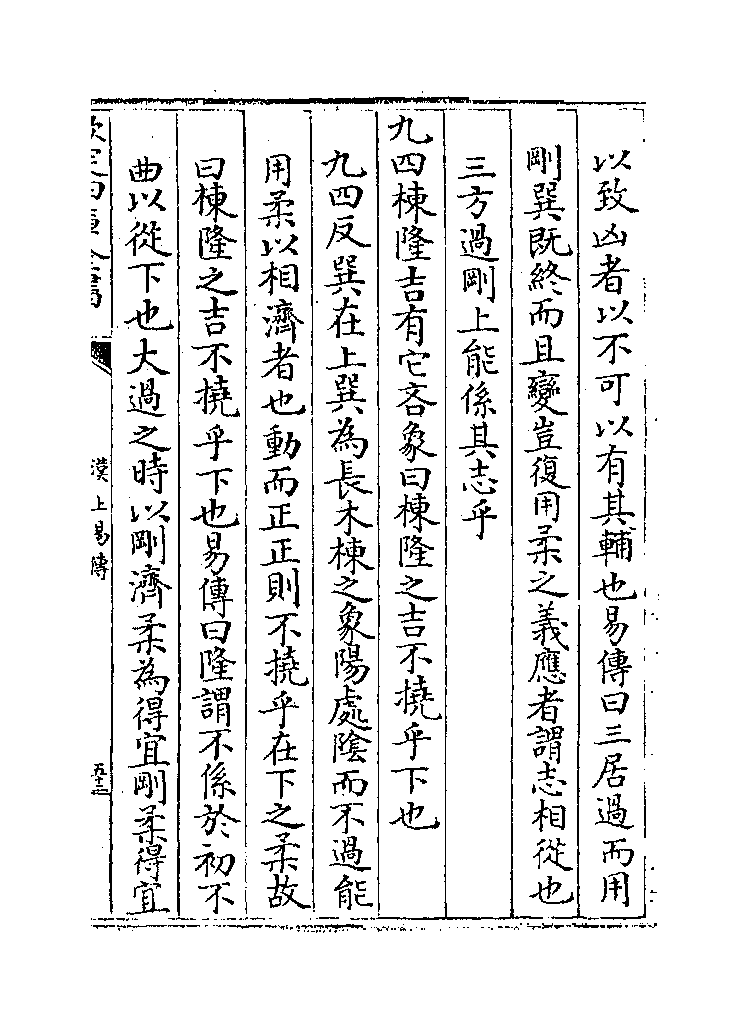 以致凶者以不可以有其輔也易傳曰三居過而用
剛巽既終而且變豈復用柔之義應者謂志相從也
三方過剛上能係其志乎
九四棟隆吉有它吝象曰棟隆之吉不撓乎下也
九四反巽在上巽為長木棟之象陽處陰而不過能
用柔以相濟者也動而正正則不撓乎在下之柔故
曰棟隆之吉不撓乎下也易傳曰隆謂不係於初不
曲以從下也大過之時以剛濟柔為得宜剛柔得宜
欽定四庫全書
漢上易傳
五十三